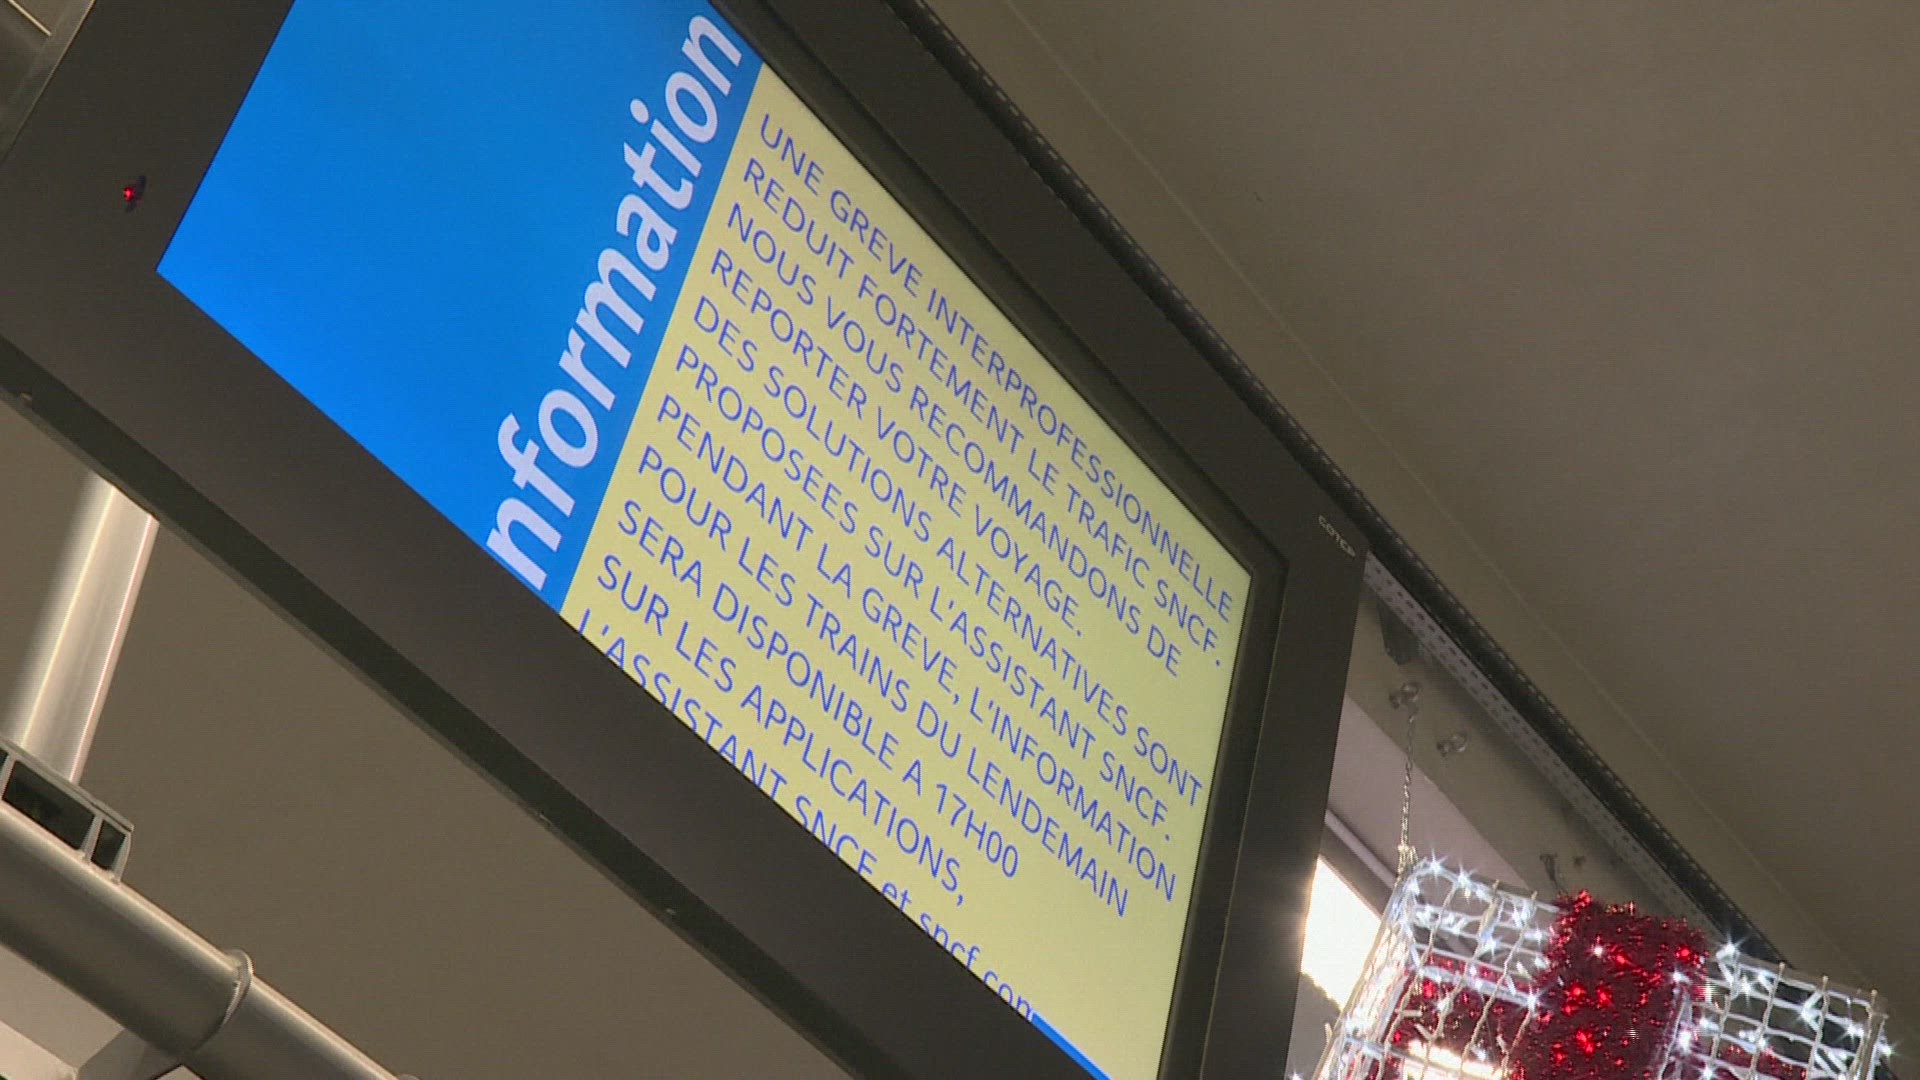 nformation
UNE GREVE INTERPROFESSIONNELLE
REDUIT FORTEMENT LE TRAFIC SNCF.
NOUS VOUS RECOMMANDONS DE
REPORTER VOTRE VOYAGE.
DES SOLUTIONS ALTERNATIVES SONT
PROPOSEES SUR L'ASSISTANT SNCF.
PENDANT LA GREVE, L'INFORMATION
POUR LES TRAINS DU LENDEMAIN
SERA DISPONIBLE A 17H00
SUR LES APPLICATIONS,
L'ASSISTANT SNCF et sncf.com